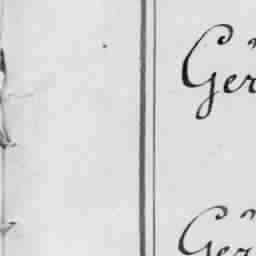 Ger
Ger